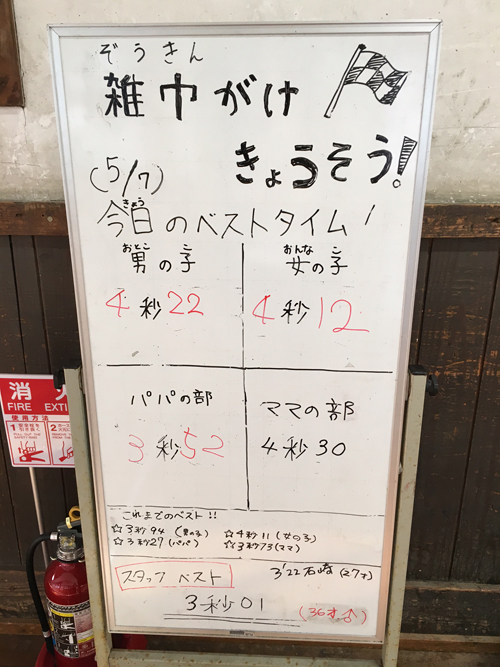 ぞうきん
雑巾がけ
きょうそう!
(5/7)
きょう
今日のベストタイム!
おとこ こ
男の子
4秒22
おんな こ
女の子
4秒12
パパの部
3秒52
ママの部
4秒30
これまでのベスト!!
☆3秒94 (男の子)
☆4秒11 (女の子)
☆3秒27 (パパ)
☆3秒73 (ママ)
スタッフ ベスト
3'22 石崎 (27才)
3秒01
(36才♂)
消 火
FIRE EXTI
使用方法
1
2